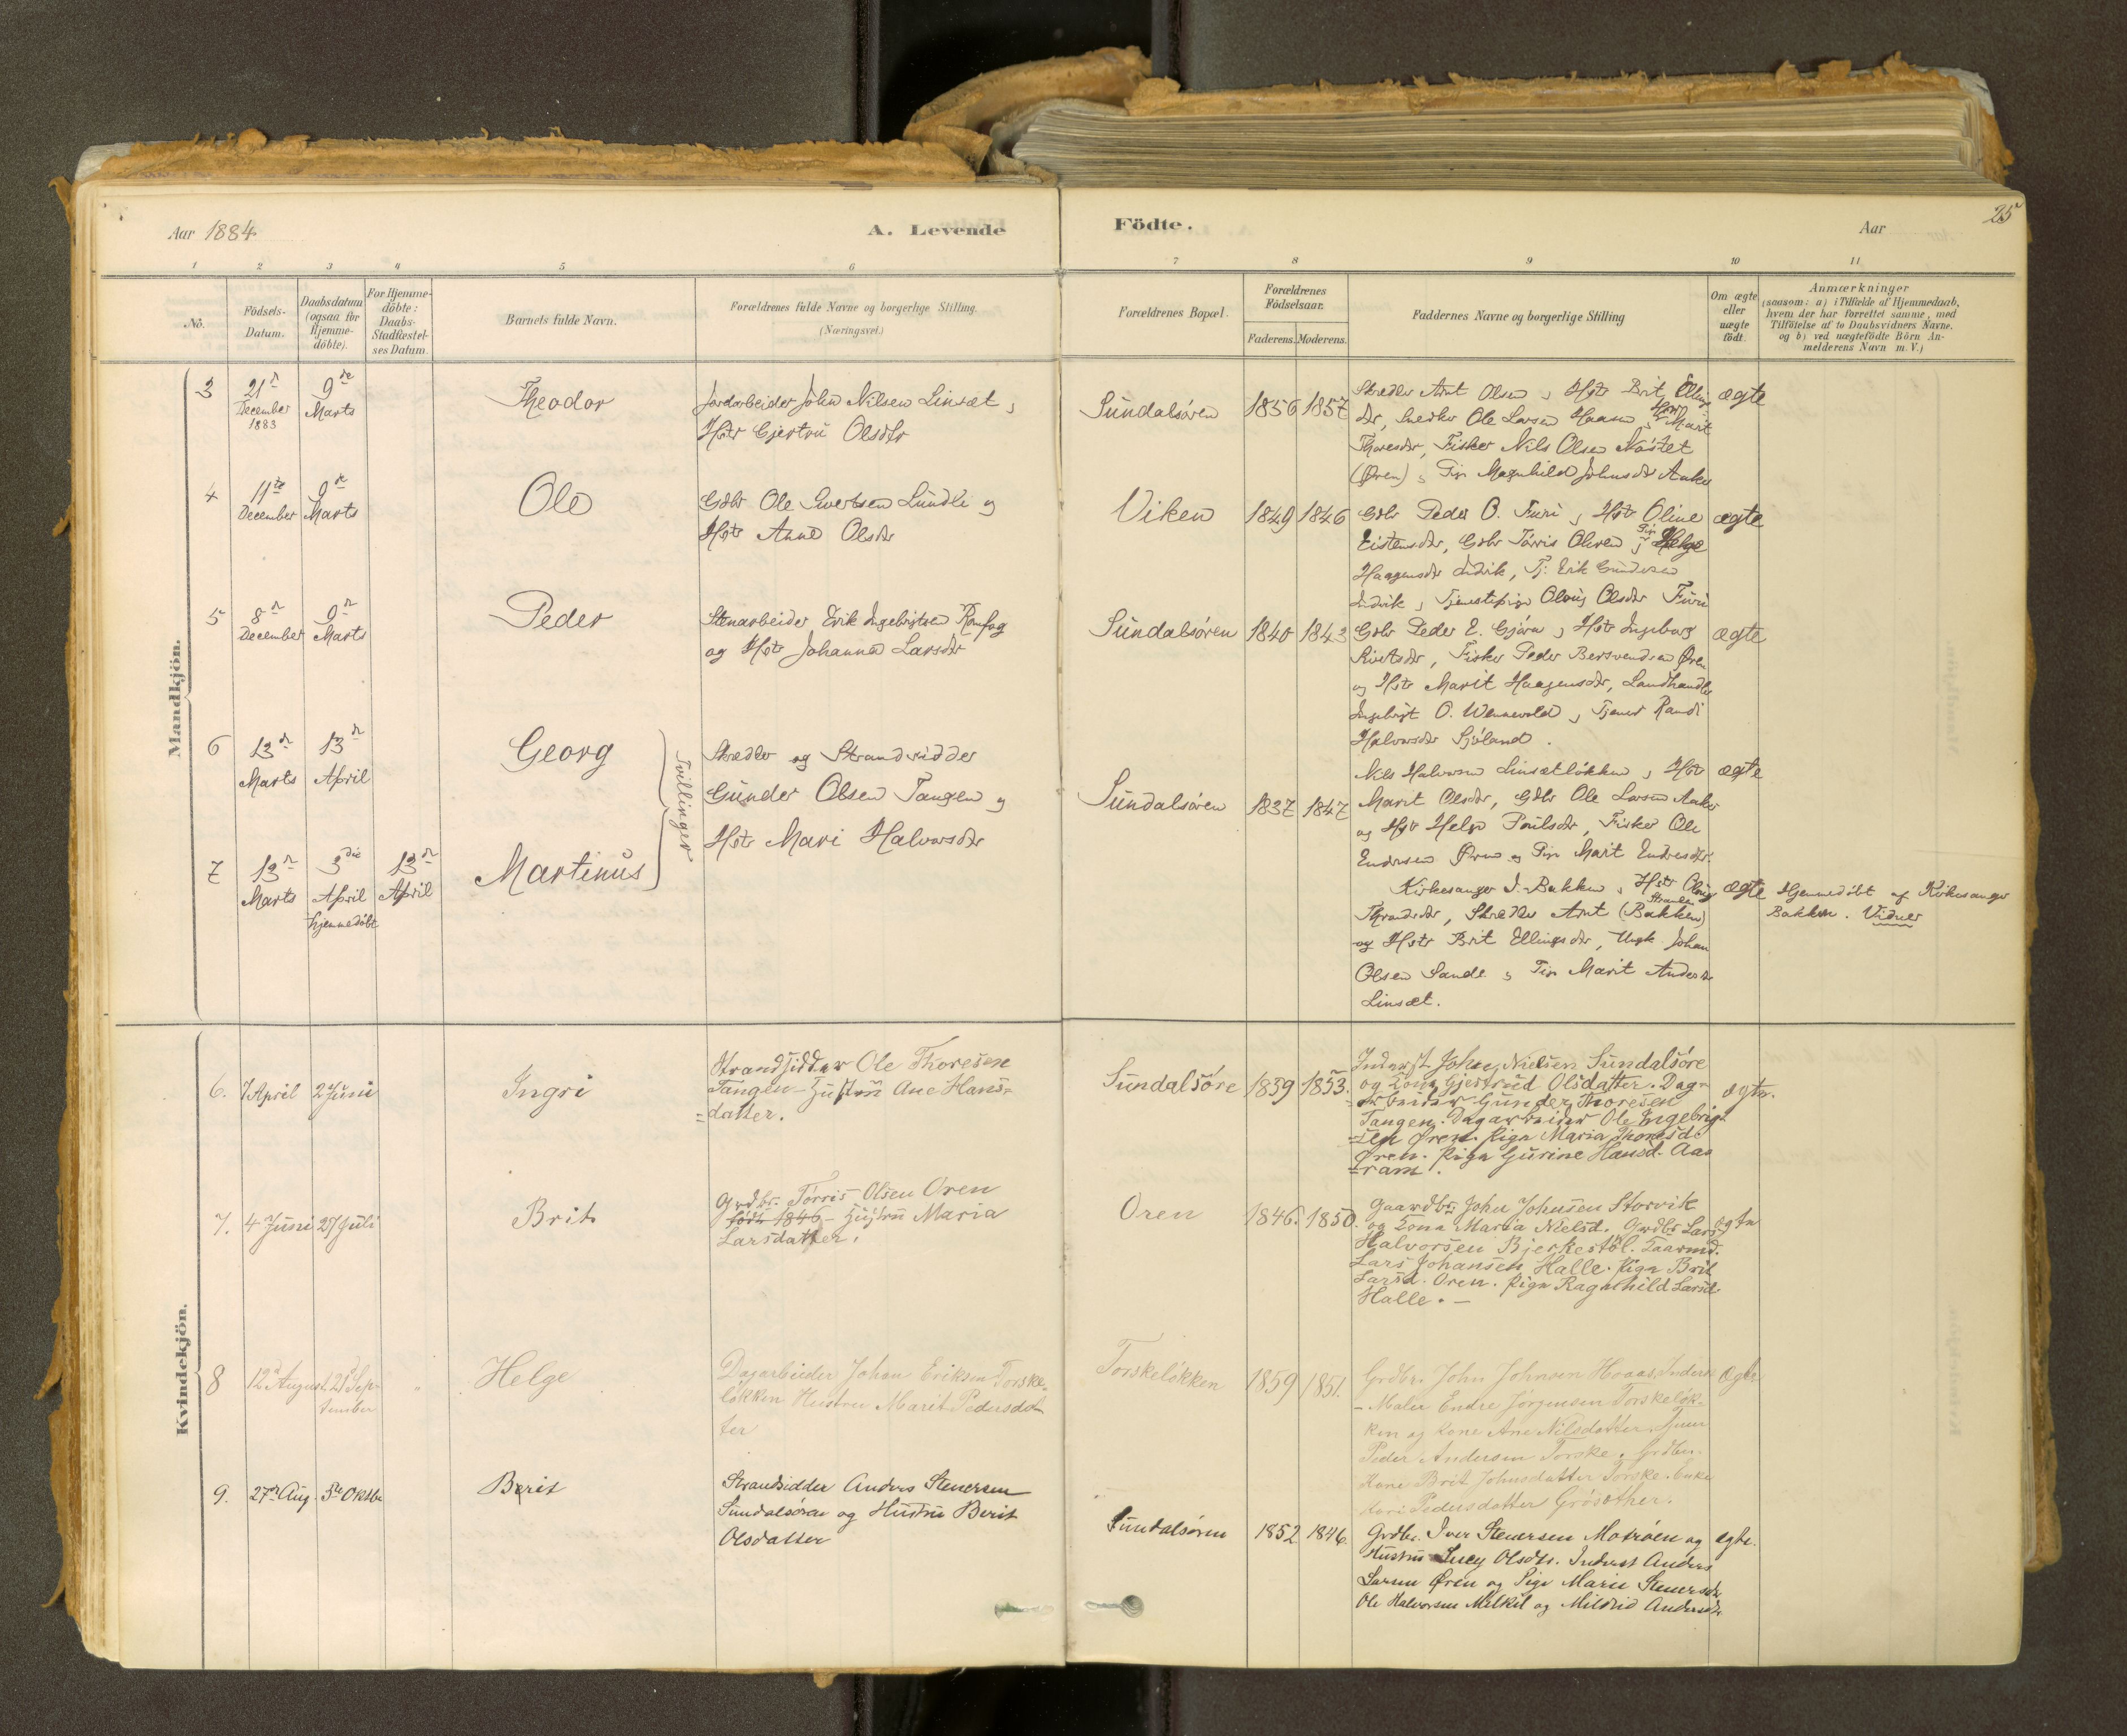 Aar 1884
A. Levende
Födte.
Aar
25
1 2 3 4 5 6 7 8 9 10 11
No.
Födsels-
Datum.
Daabsdatum
(ogsaa for
Hjemme-
döbte).
For Hjemme-
döbte:
Daabs-
Stadfæstel-
ses Datum
Barnets fulde Navn.
Forældrenes fulde Navne og borgerlige Stilling
(Næringsvei.)
Forældrenes Bopæl.
Forældrenes
Födselsaar.
Faderens. Moderens.
Faddernes Navne og borgerlige Stilling
Om ægte
eller
uægte
födt.
Anmærkninger
(saasom: a) i Tilfælde af Hjemmedaab,
hvem der har forrettet samme, med
Tilföielse af to Daabsvidners Navne.
og b) ved uægtefödte Börn An-
melderens Navn m. V.)
Mandkjön.
3
21de
December
1883
9de
Marts
Theodor
Jordarbeider John Nilsen Linsæt,
Hstr Gjertru Olsdtr
Sundalsøren
1856 1857
Skredder Arnt Olsen, Hstr Brit Ellings
dtr, Snedker Ole Larsen Haasen, Hstr Marit
Thoresdr, Fisker Nils Olsen Nöstet
(Øren), Pige Magnhild Johnsdr Aaker
ægte
4
11te
December
9de
Marts
Ole
Gdbr Ole Sivertsen Lundli og
Hstr Anne Olsdr
Viken
1849 1846
Gdbr Peder O. Furi, Hstr Oline
Eistensdtr, Gdbr Tørris Olsen, Pige Helge
Haagensdr Indvik, Tj. Erik Gundersen
Indvik, Tjenestepige Olouy Olsdr Furi
ægte
5
8de
December
9de
Marts
Peder
Stenarbeider Erik Ingebrigtsen Romfog
og Hstr Johanna Larsdr
Sundalsøren
1840 1843
Gdbr Peder E. Gjøra, Hstr Ingeborg
Sivertsdr, Fisker Peder Bersvendsen Øren
og Hstr Marit Haagensdr, Landhandler
Ingebrigt O. Wennevold, Tjener Randi
Halvorsdr Sjöland.
ægte
6
13de
Marts
13de
April
Georg
Tvillinger
Skredder og Strandsidder
Gunder Olsen Tangen og
Hstr Mari Halvorsdr
Sundalsøren
1837 1847
Nils Halvorsen Linsætløkken, Hstr
Marit Olsdr, Gdbr Ole Larsen Aaker
og Hstr Helge Poulsdr, Fisker Ole
Endresen Øren og Pige Marit Endresdr.
ægte
7
13de
Marts
3die
April
hjemmedøbt
13de
April
Martinus
Kirkesanger I. Bakken, Hstr Olouy
Throndsdr, Skredder Arnt (Bakken) Stranden
og Hstr Brit Ellingsdr, Ungk. Johan
Olsen Sande, Pige Marit Andersdr
Linsæt.
ægte
Hjemmedøbt af Kirkesanger
Bakken. Vidner
Kvindekjön.
6.
7 April
2 Juni
Ingri
Strandsidder Ole Thoresen
Tangen – Hustru Ane Hans=
=datter.
Sundalsöre
1839 1853.
Inderst John Nielsen Sundalsöre
og Kone Gjertrud Olsdatter. Dag=
=arbeider Gunder Thoresen
Tangen. Dagarbeider Ole Ingebrigt
=sen Øren. Pige Maria Thoresd.
Øren. Pige Gurine Hansd. Aas
=ram.
ægte.
7.
4 Juni
27 Juli
Brit
Grdbr. Törris Olsen Oren
född 1846 – Hustru Maria
Larsdatter.
Oren
1846. 1850.
Gaardbr. John Johnsen Storvik
og Kone Maria Nielsd. Grdbr Lars
Halvorsen Bjerkestöl. Gaarmd.
Lars Johansen Halle. Pige Brit
Larsd. Oren. Pige Ragnhild Larsd.
Halle. –
ægte
8
12 August
21 Sep-
tember
"
Helge
Dagarbeider John Eriksen Torske-
løkken Hustru Marit Pedersdat
ter
Torskeløkken
1859 1851.
Grdbr. John Johnsen Hoaas, Inderst
– Maler Endre Jørgensen Torskeløk-
ken og Kone Ane Nilsdatter, Tjener
Peder Andersen Torske, Grdbr.
Kone Brit Johnsdatter Torske. Enke
Kari Pedersdatter Grøsæther.
ægte
9.
27de Aug.
5te Oktbr
Berit
Strandsidder Anders Steuersen
Sundalsøren og Hustru Berit
Olsdatter
Sundalsøren
1852 1846.
Grdbr. Iver Steuersen Motrøen og
Hustru Sucy Olsdtr. Inderst Anders
Larsen Øren og Pige Marie Steuersdtr
Ole Halvorsen Melkil og Mildrid Andersdtr.
ægte.